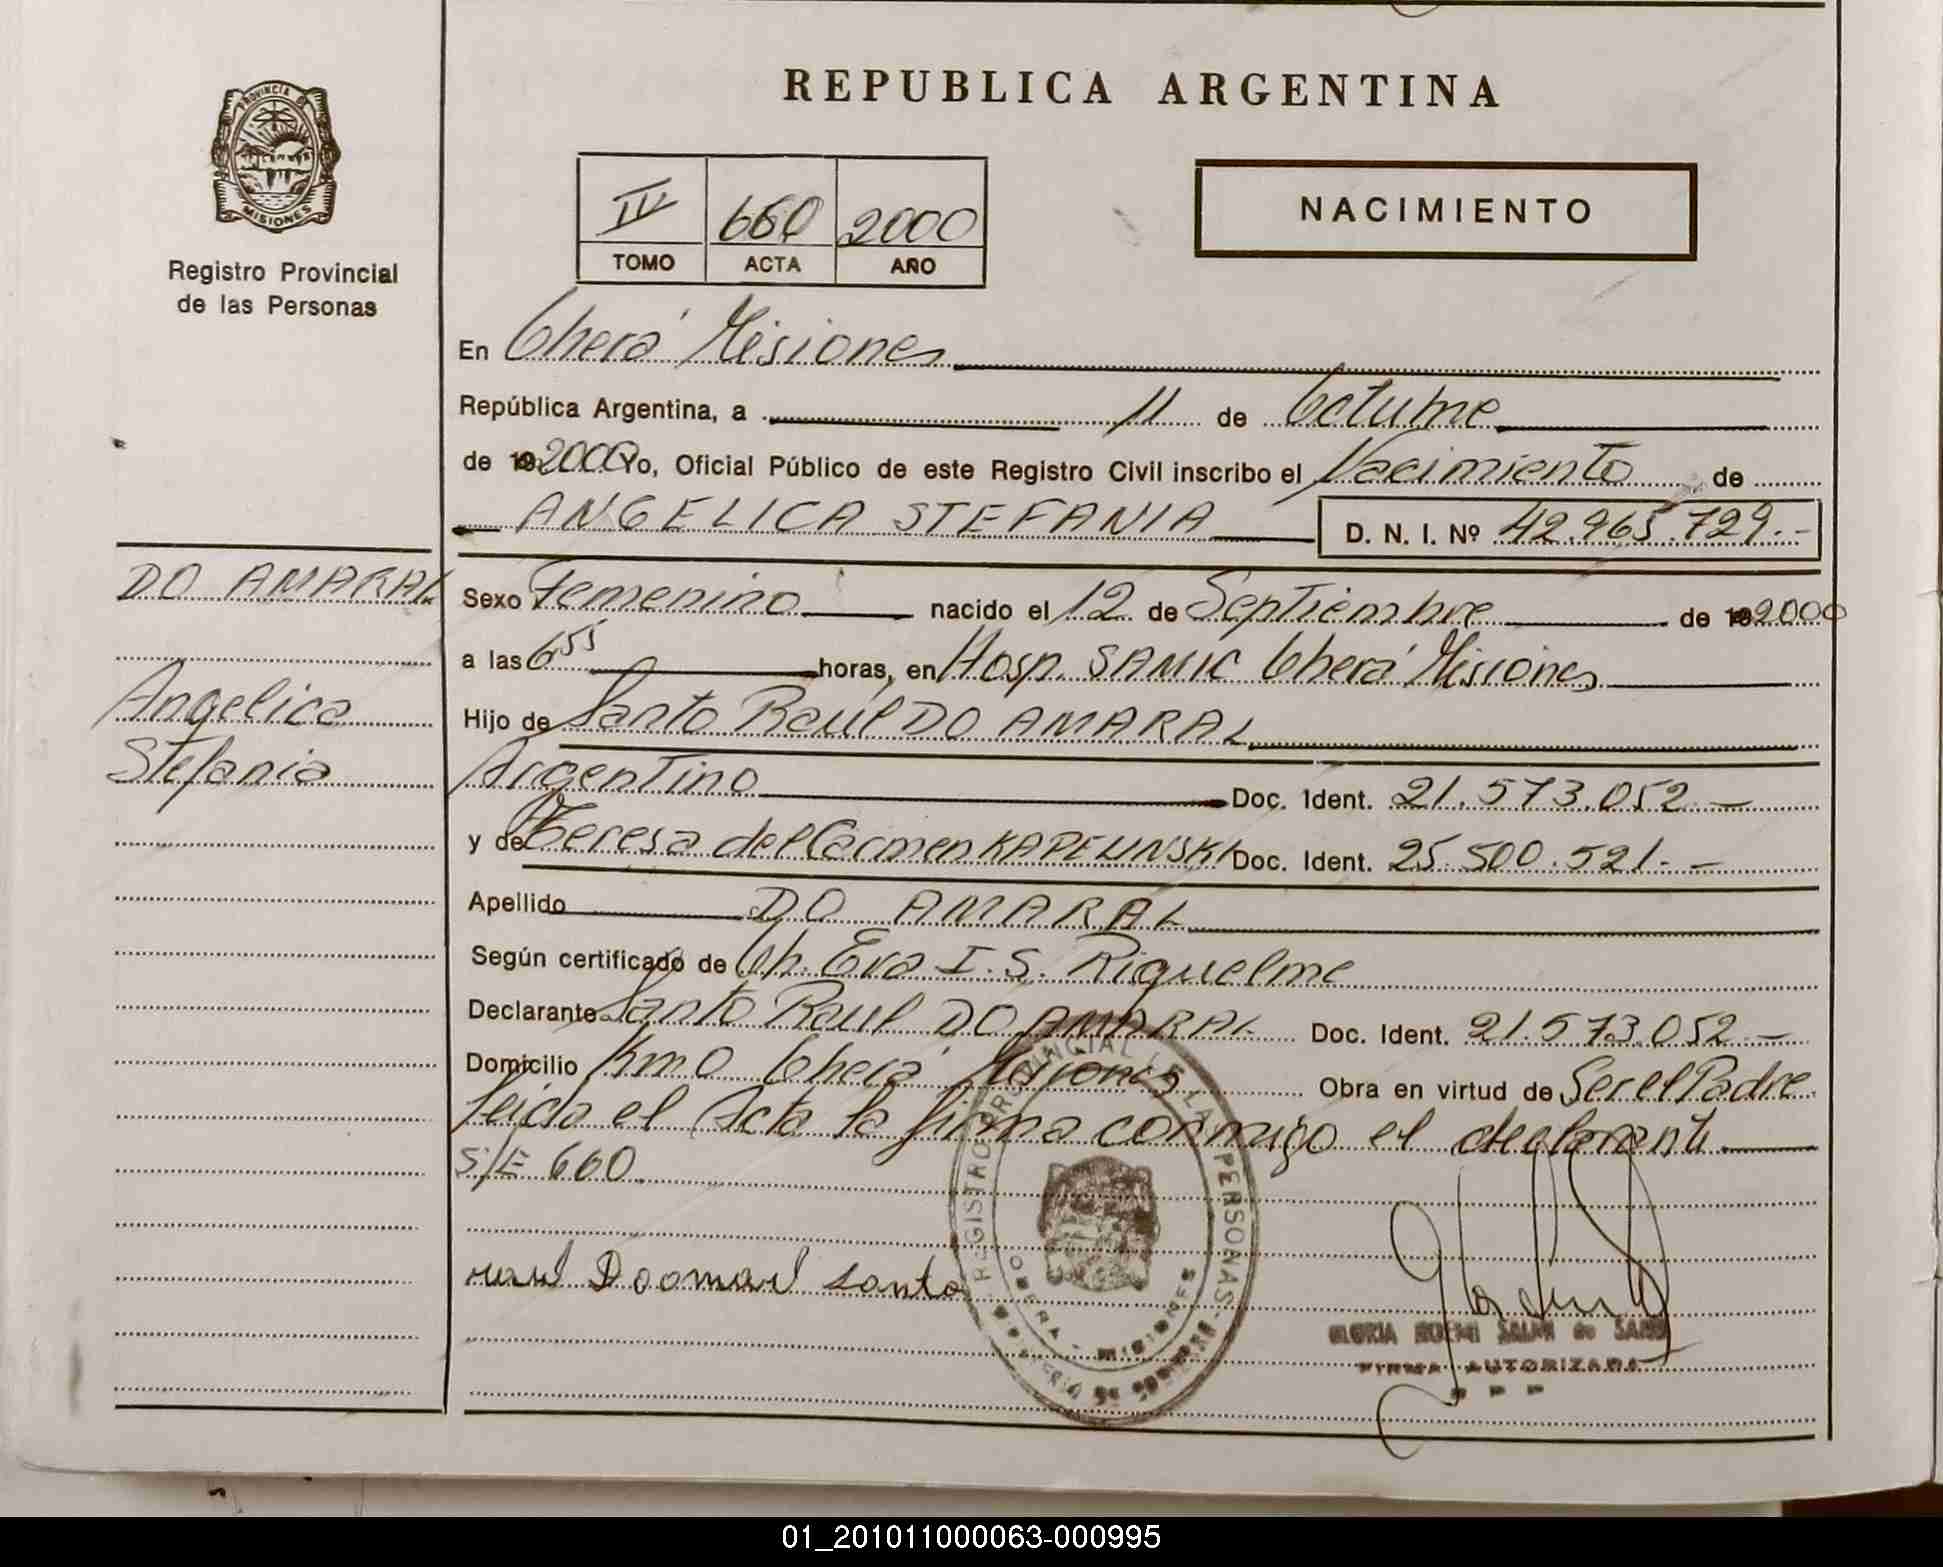 PROVINCIA DE
MISIONES
Registro Provincial
de las Personas
REPUBLICA ARGENTINA
IV 660 2000
TOMO ACTA AÑO
NACIMIENTO
En Oberá Misiones
República Argentina, a 11 de Octubre
de 19 2000 Yo, Oficial Público de este Registro Civil inscribo el Nacimiento de
ANGELICA STEFANIA D. N. I. Nº 42.965.729.-
DO AMARAL
Angelica
Stefania
Sexo Femenino nacido el 12 de Septiembre de 19 2000
a las 6 55 horas, en Hosp. SAMIC Oberá Misiones
Hijo de Santo Raúl DO AMARAL
Argentino Doc. Ident. 21.573.052.-
y de Teresa del Carmen KAPELINSKI Doc. Ident. 25.500.521.-
Apellido DO AMARAL
Según certificado de Ob. Eva I. S. Riquelme
Declarante Santo Raul DO AMARAL Doc. Ident. 21.573.052-
Domicilio Km 0 Oberá Misiones Obra en virtud de Ser el Padre
Leida el Acta la firma conmigo el declarante
S/E 660.
raul Doamaral santo
REGISTRO PROVINCIAL DE LAS PERSONAS
OBERA - MISIONES
GLORIA NOEMI SALMI de
FIRMA AUTORIZADA
01_201011000063-000995